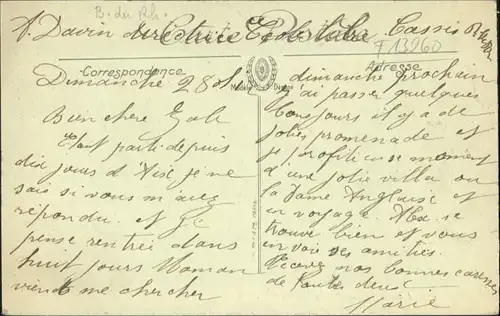 B. du Rh.
A. Davin directrice Ecole Cassis
F 13260
Carte Postale
Correspondance
Adresse
Dimanche 28
Bien chère
Etant parti depuis
dix jours d'Aix je ne
sais si vous m'avez
répondu. et je
pense rentrée dans
huit jours Maman
viendra me chercher
dimanche prochain
j'ai passer quelques
bons jours il y a de
jolies promenade et
je profite en se moment
d'une jolie villa ou
la Dame Anglaise et
en voyage se
trouve bien et vous
envoie ses amitiés.
Recevez nos bonnes caresses
de toutes deux.
Marie